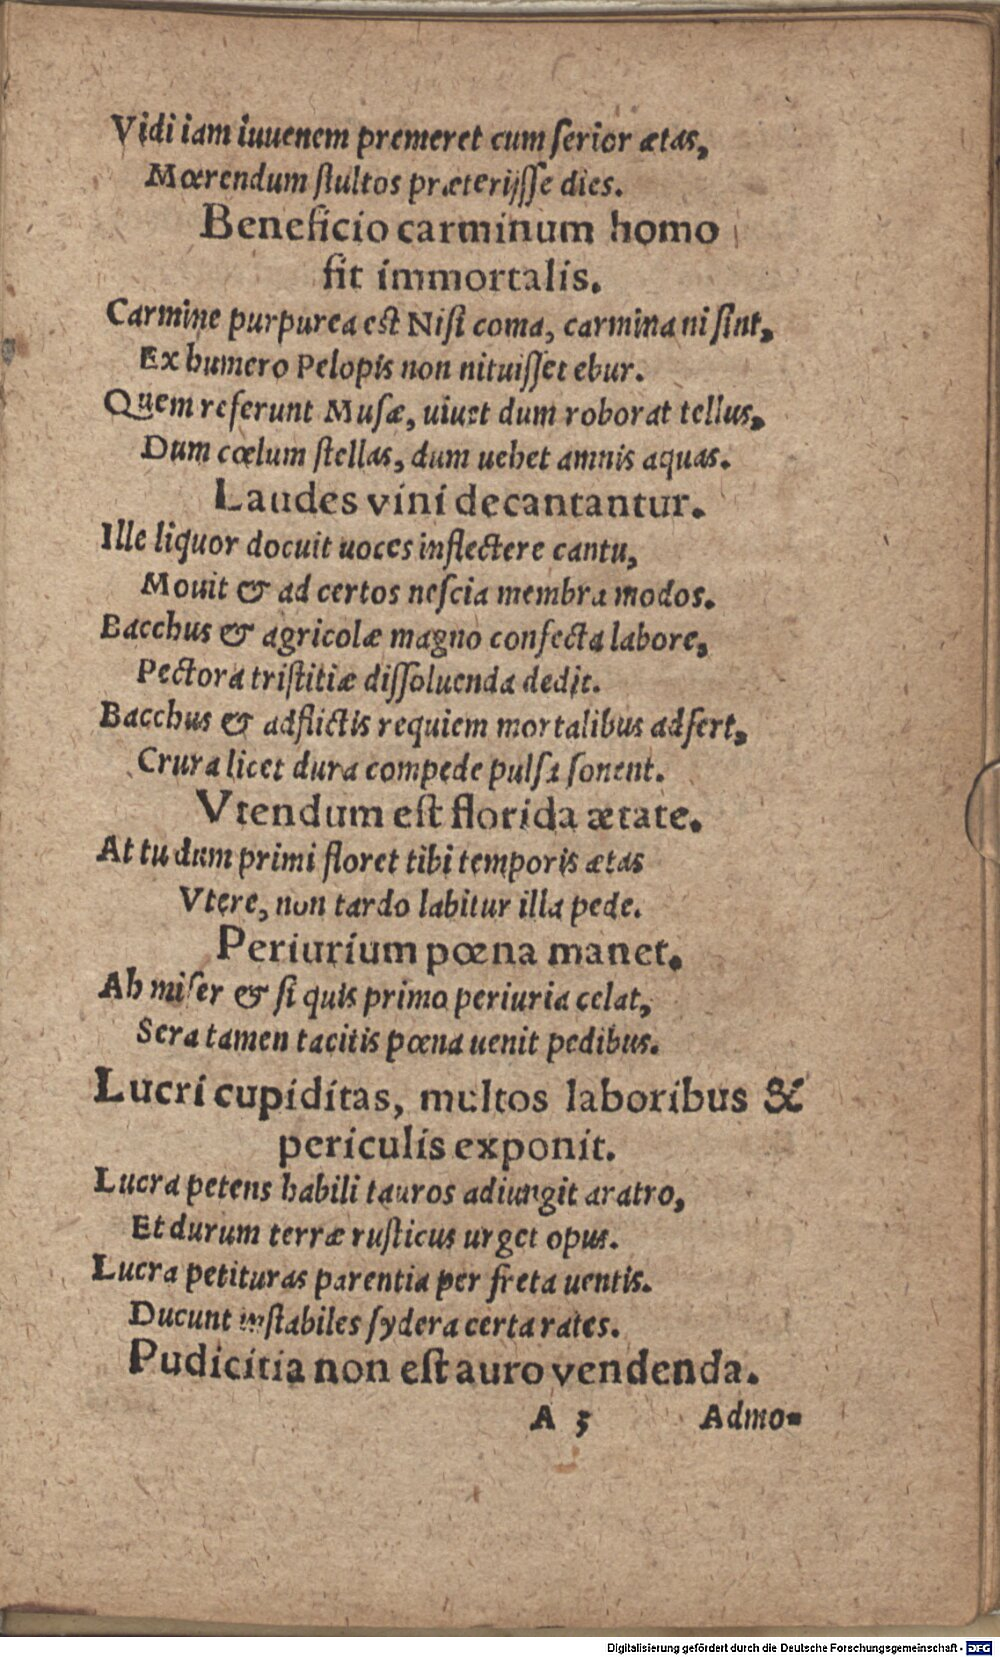 Vidi iam iuuenem premeret cum serior ætas,
Mœrendum stultos præterijsse dies.
Beneficio carminum homo
fit immortalis.
Carmine purpurea est Nisi coma, carmina ni sint,
Ex humero Pelopis non nituisset ebur.
Quem referunt Musæ, uiuet dum roborat tellus,
Dum cœlum stellas, dum uehet amnis aquas.
Laudes vini decantantur.
Ille liquor docuit uoces inflectere cantu,
Mouit & ad certos nescia membra modos.
Bacchus & agricolæ magno confecta labore,
Pectora tristitiæ dissoluenda dedit.
Bacchus & adflictis requiem mortalibus adfert,
Crura licet dura compede pulsa sonent.
Vtendum est florida ætate.
At tu dum primi floret tibi temporis ætas
Vtere, non tardo labitur illa pede.
Periurium pœna manet.
Ah miser & si quis primo periuria celat,
Sera tamen tacitis pœna uenit pedibus.
Lucri cupiditas, multos laboribus &
periculis exponit.
Lucra petens habili tauros adiungit aratro,
Et durum terræ rusticus urget opus.
Lucra petituras parentia per freta uentis.
Ducunt instabiles sydera certa rates.
Pudicitia non est auro vendenda.
A 5 Admo-
Digitalisierung gefördert durch die Deutsche Forschungsgemeinschaft - DFG